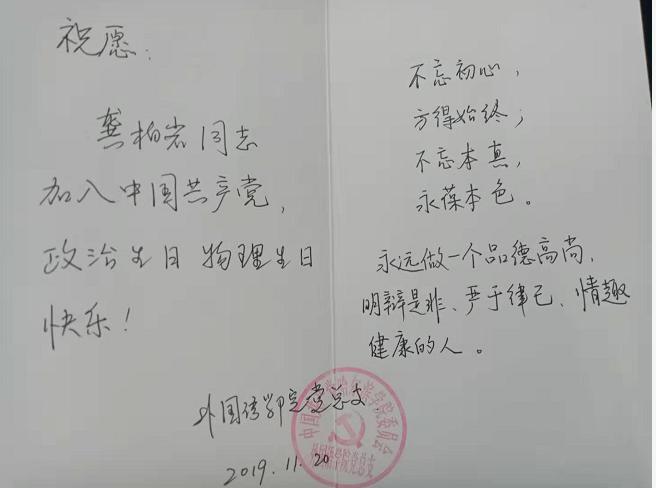 祝愿：
龚柏岩同志
加入中国共产党，
政治生日 物理生日
快乐！
外国语学院党总支
2019.11.20
不忘初心，
方得始终；
不忘本真，
永葆本色。
永远做一个品德高尚、
明辩是非、严于律己、情趣
健康的人。
外国语学院党总支